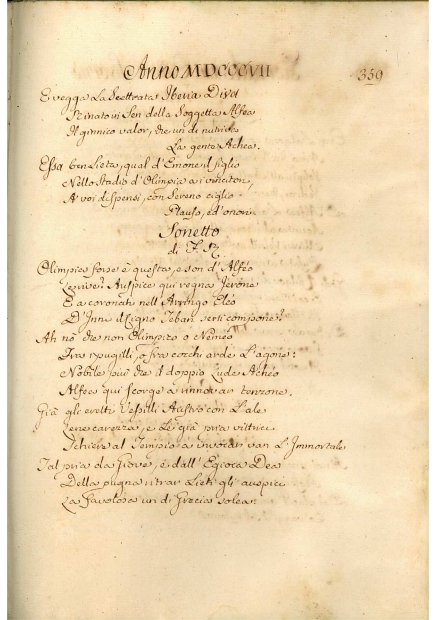 Anno MDCCCVII 359
E vegga La Scettrata Iberia Diva
Rinato in Sen della Soggetta Alfea
Il ginnico valor, che un dì nutriva
La gente Achea.
Essa ben Lieta, qual d'Emone il figlio
Nello Stadio d'Olimpia a i vincitori,
A' voi dispensi, con Sereno ciglio
Plauso, ed onori
Sonetto
di F. R.
Olimpica forse è questa, e son d'Alféo
Le rive? Auspice qui regna Jerone
E a coronati nell'Arringo Eléo
D'Inni il Cigno Teban serti compone?
Ah nò che non Olimpico o Neméo
Tra i pugilli, o fra cocchi arde L'agone:
Nobile più che il doppio Ludo Achéo
Alfea qui scorge a rinnovar tenzone.
Già gli evelti Vessilli Austro con L'ale
ene carezza, e Le già pria vittrici
Schiere al Tempio a invocar van L'Immortale
Tal pria da Giove, e dall' Egioca Dea
Della pugna ritrar Lieti gli auspici
La favolosa un dì Grecia solea